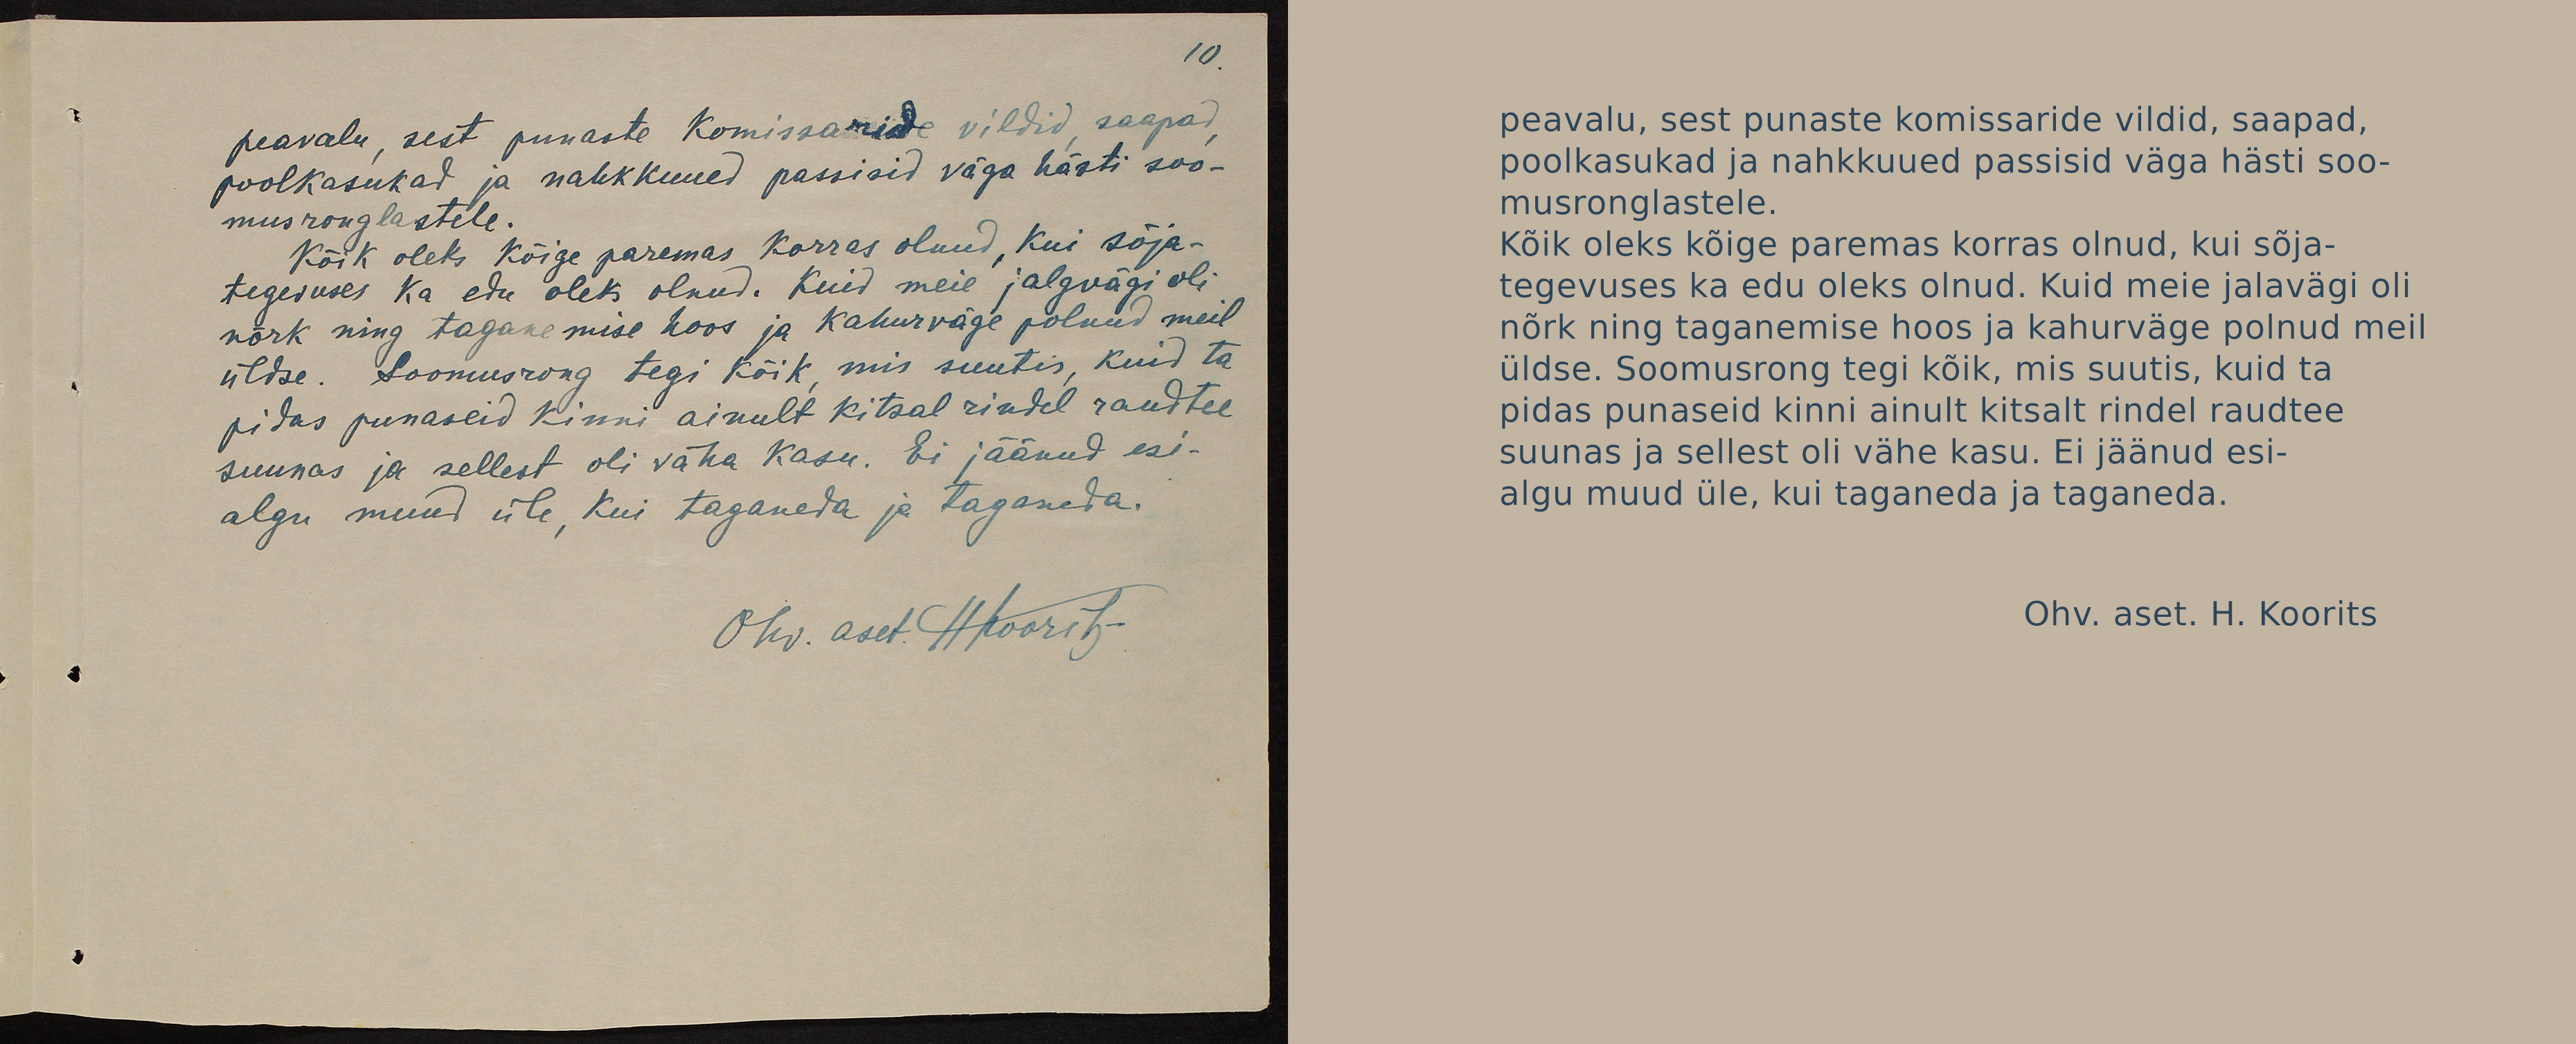 10.
peavalu, sest punaste komissaride vildid, saapad,
poolkasukad ja nahkkuued passisid väga hästi soo-
musronglastele.
Kõik oleks kõige paremas korras olnud, kui sõja-
tegevuses ka edu oleks olnud. Kuid meie jalgvägi oli
nõrk ning taganemise hoos ja kahurväge polnud meil
üldse. Soomusrong tegi kõik, mis suutis, kuid ta
pidas punaseid kinni ainult kitsal rindel raudtee
suunas ja sellest oli väha kasu. Ei jäänud esi-
algu muud üle, kui taganeda ja taganeda.
Ohv. aset. HKoorits
peavalu, sest punaste komissaride vildid, saapad,
poolkasukad ja nahkkuued passisid väga hästi soo-
musronglastele.
Kõik oleks kõige paremas korras olnud, kui sõja-
tegevuses ka edu oleks olnud. Kuid meie jalavägi oli
nõrk ning taganemise hoos ja kahurväge polnud meil
üldse. Soomusrong tegi kõik, mis suutis, kuid ta
pidas punaseid kinni ainult kitsalt rindel raudtee
suunas ja sellest oli vähe kasu. Ei jäänud esi-
algu muud üle, kui taganeda ja taganeda.
Ohv. aset. H. Koorits